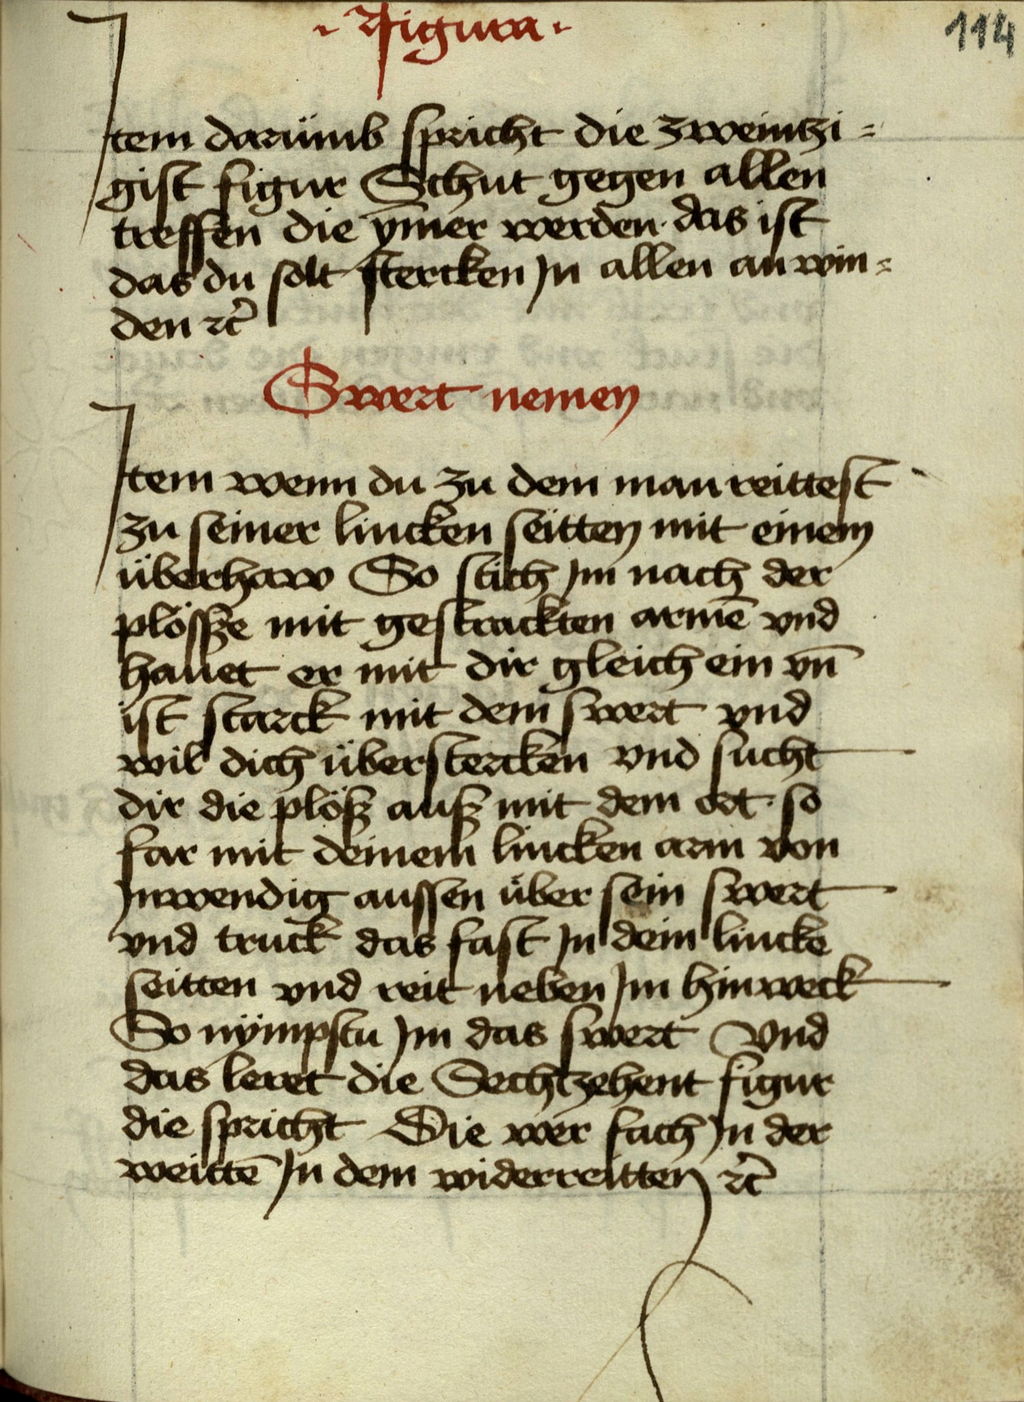 · Figura ·
114
Item darümb spricht die zweintzi =
gist figur Schut gegen allen
treffen die ÿm̄er werden · das ist
das du solt stercken Jn allen an win =
den ꝛc̄
Swert nemen
Item wenn du zu dem man reittest
zu seiner lincken seitten mit einem
überhaw So stich Jm nach der
plösse mit gestrackten armē vnd
hauet er mit dir gleich ein vn̄
ist starck mit dem swert vnd
wil dich überstercken vnd sucht
dir die plösz ausz mit dem ort · so
far mit deinem lincken arm von
Jnwendig aussen über sein swert
vnd truck das fast Jn dein lincke
seitten vnd reit neben Jm hinweck
So nÿmpstu Jm das swert Vnd
das leret die Sechtzehent figur
die spricht Die wer fach Jn der
weittē Jn dem widerreitten ꝛc̄